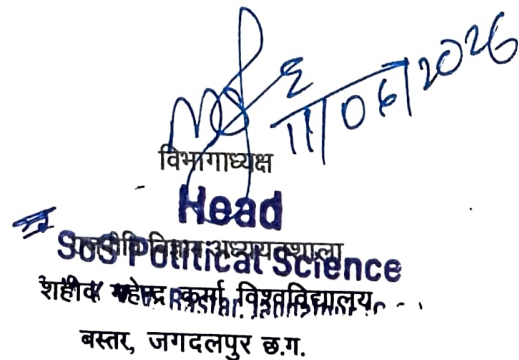 11/06/2026
विभागाध्यक्ष
Head
राजनीति विज्ञान अध्ययनशाला
SoS Political Science
शहीद महेन्द्र कर्मा विश्वविद्यालय
बस्तर, जगदलपुर छ.ग.